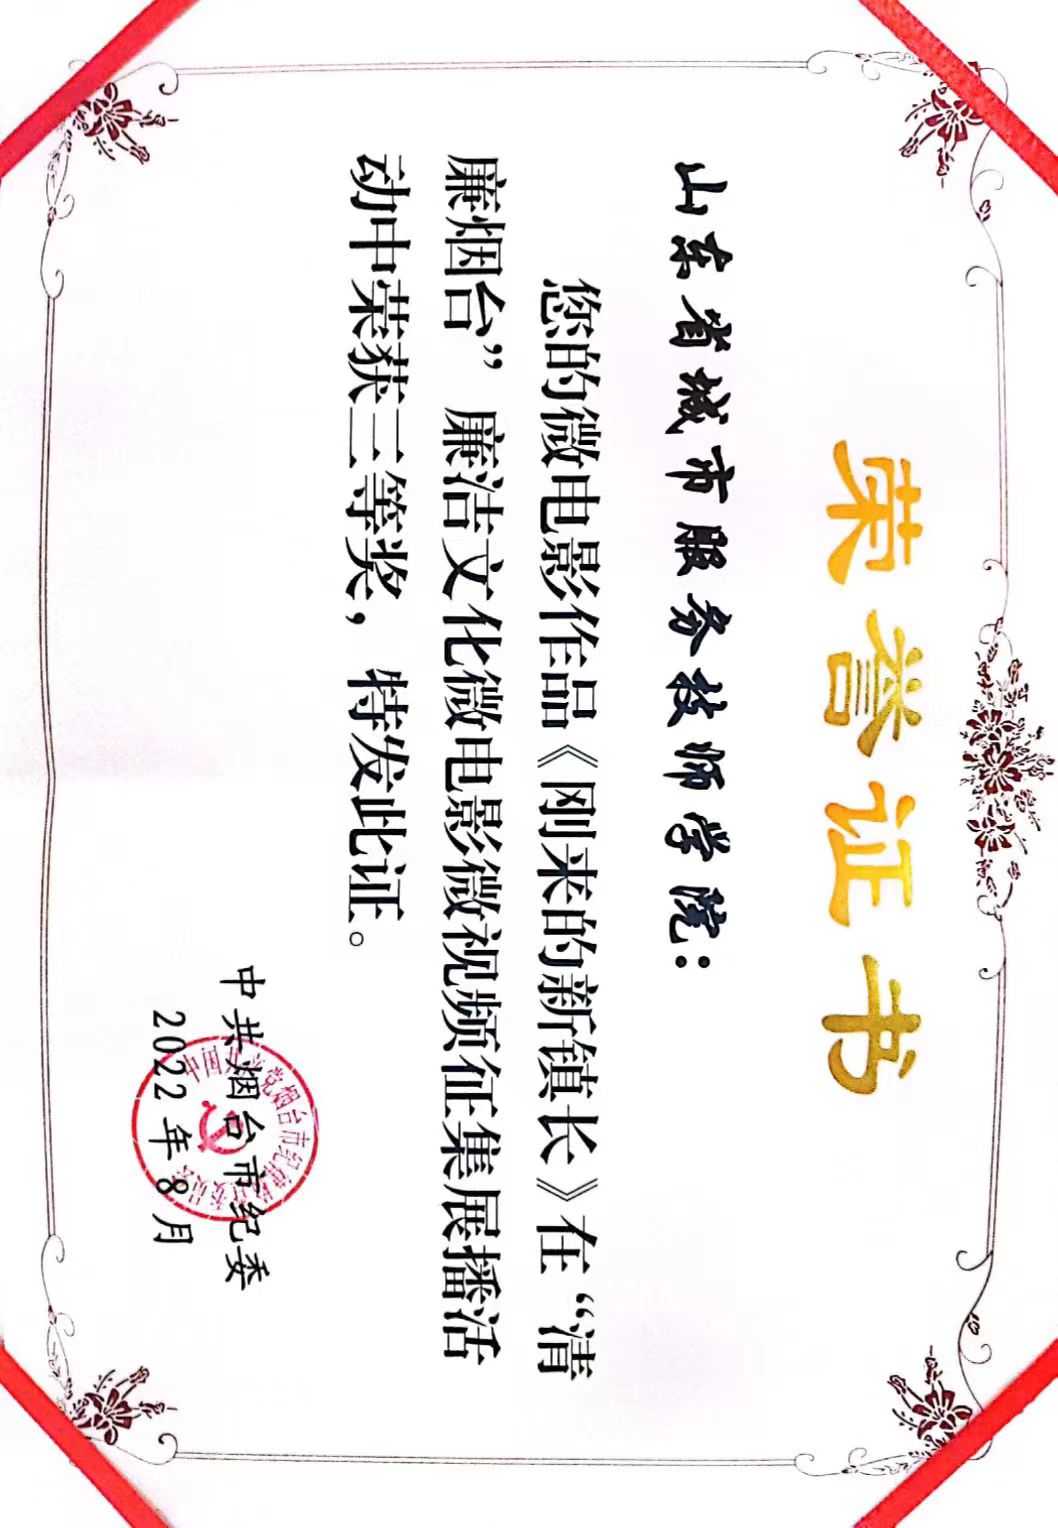 荣誉证书
山东省城市服务技师学院：
您的微电影作品《刚来的新镇长》在“清
廉烟台”廉洁文化微电影微视频征集展播活
动中荣获三等奖，特发此证。
中共烟台市纪委
2022年8月
中国共产党烟台市纪律检查委员会